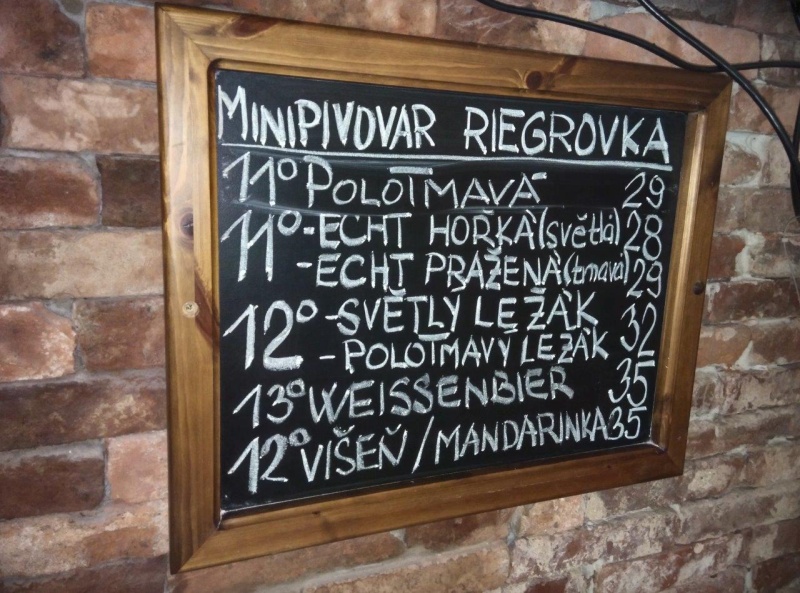 MINIPIVOVAR RIEGROVKA
11° POLOTMAVÁ 29
11° -ECHT HOŘKÁ (světlá) 28
-ECHT PRAŽENÁ (tmavá) 29
12° -SVĚTLÝ LEŽÁK 32
-POLOTMAVÝ LEŽÁK
13° WEISSENBIER 35
12° VIŠEŇ / MANDARINKA 35